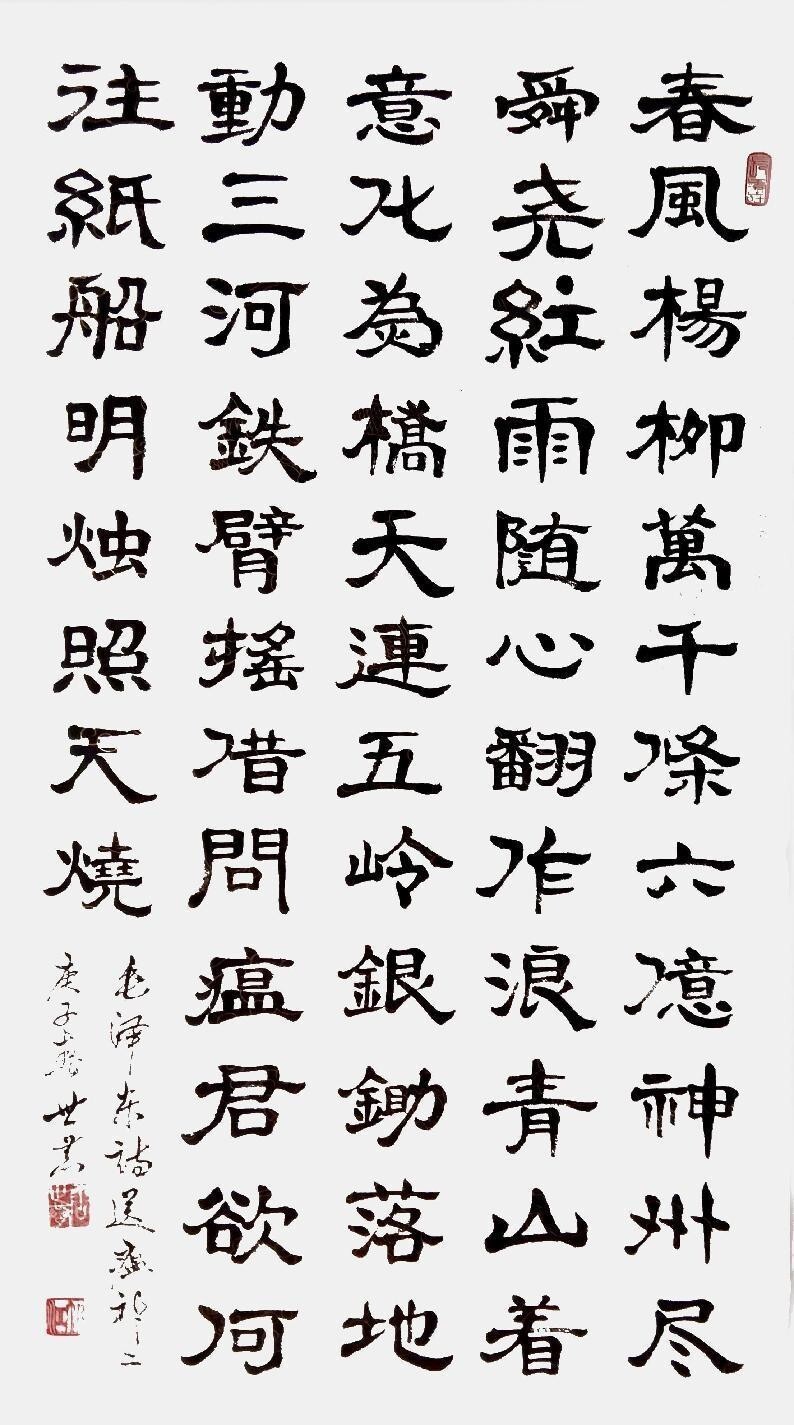 春風楊柳萬千條六億神州尽
舜尧紅雨随心翻作浪青山着
意化為橋天連五岭銀鋤落地
動三河鉄臂搖借問瘟君欲何
往紙船明烛照天燒
毛泽东詩送瘟神二
庚子上春世君